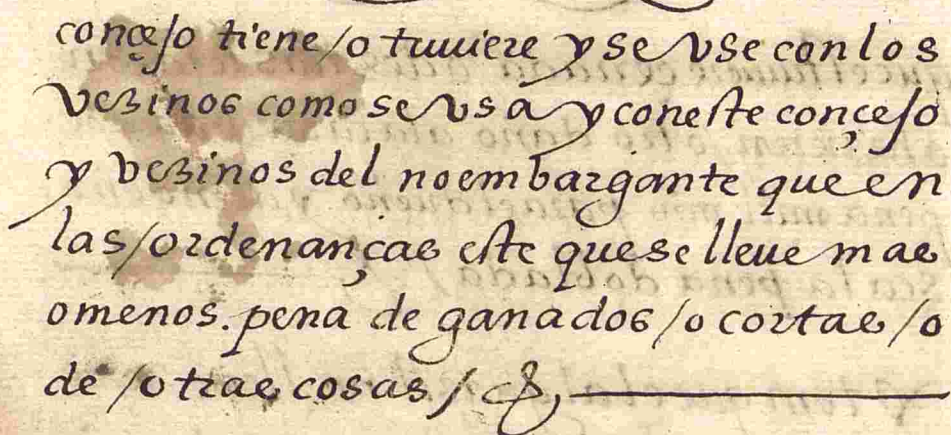 conçejo tiene /o tuuiere y se vse con los
vezinos como se vsa y con este conçejo
y vezinos del no embargante que en
las /ordenanças este que se lleue mas
o menos. pena de ganados /o cortas /o
de /otras cosas /